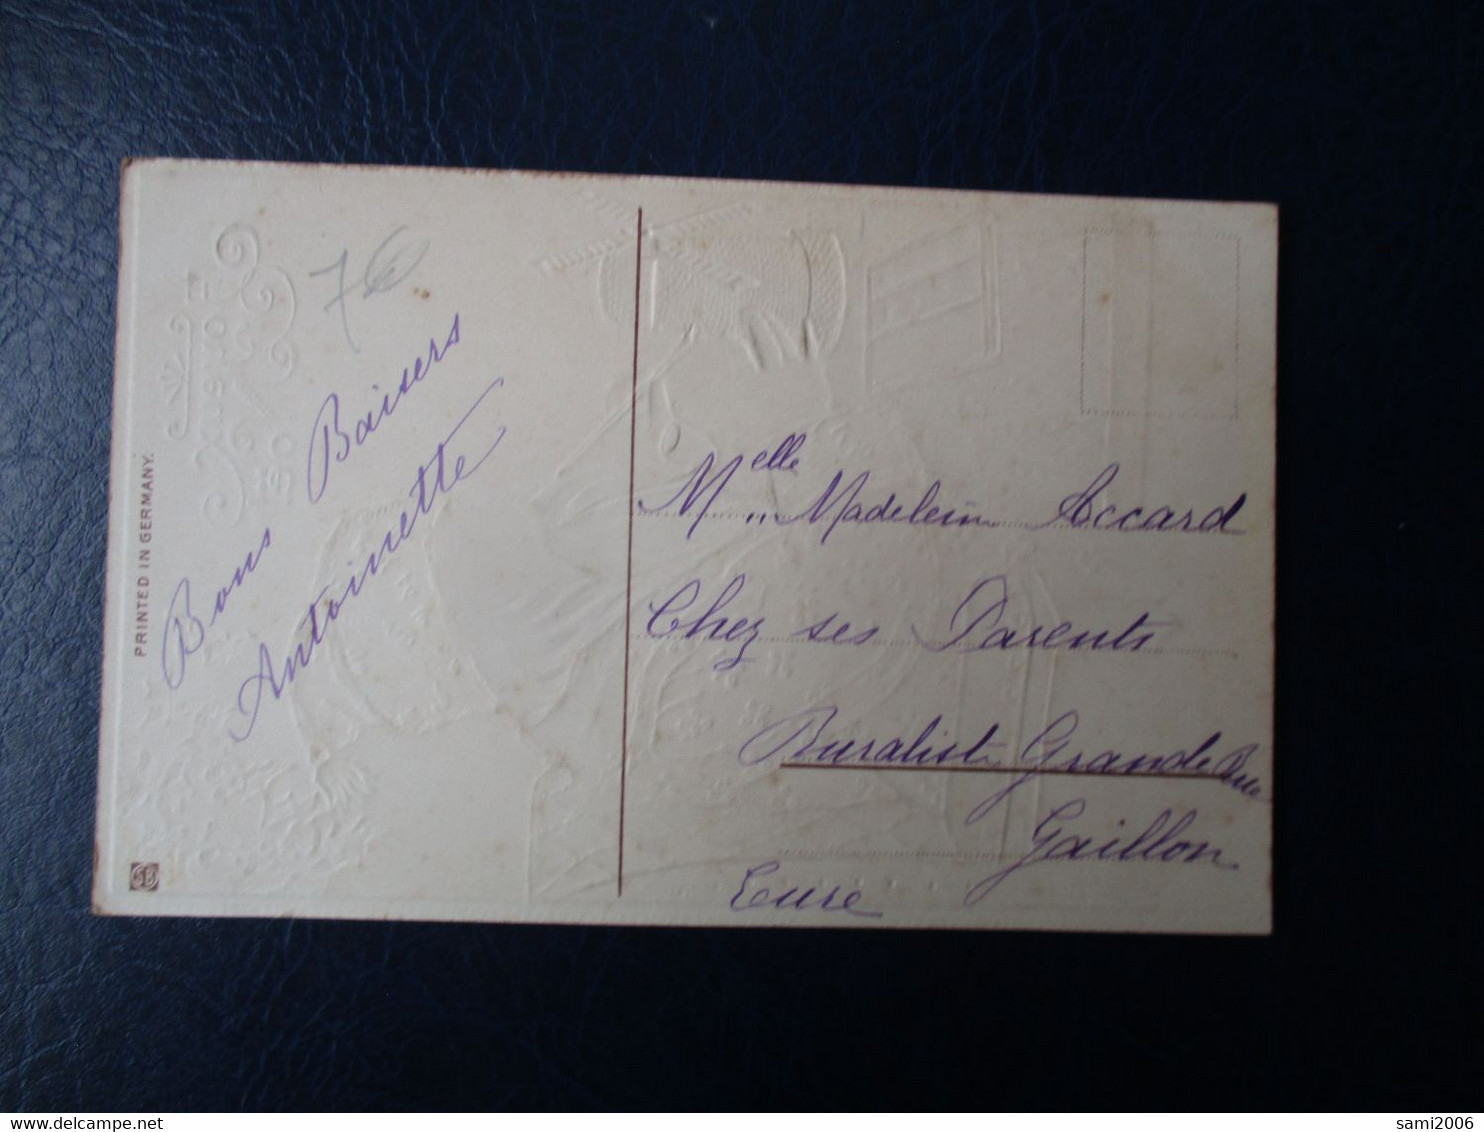 7€
Bons Baisers
Antoinette
PRINTED IN GERMANY.
Melle Madelein Accard
Chez ses Parents
Buraliste Grande Rue
Gaillon
Eure
sami2006